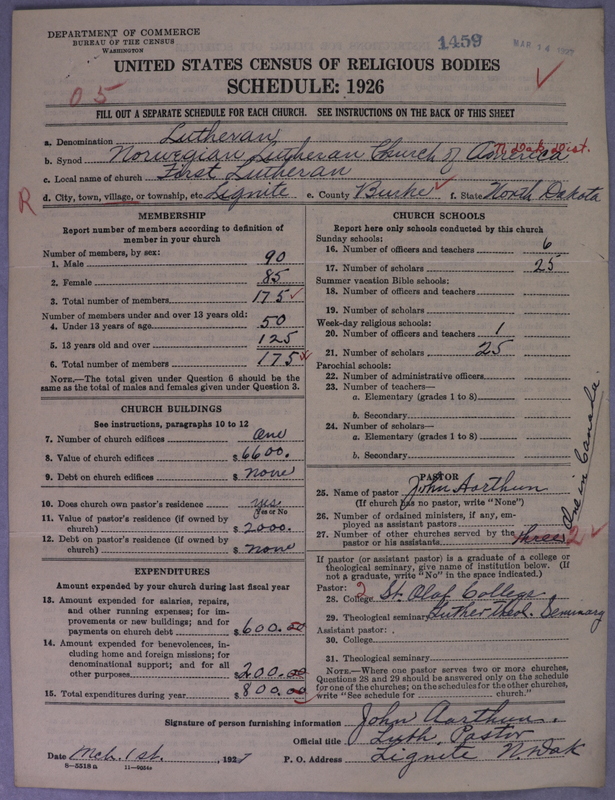 DEPARTMENT OF COMMERCE
BUREAU OF THE CENSUS
WASHINGTON
1459
MAR 14 1927
UNITED STATES CENSUS OF RELIGIOUS BODIES
SCHEDULE: 1926
05
FILL OUT A SEPARATE SCHEDULE FOR EACH CHURCH. SEE INSTRUCTIONS ON THE BACK OF THIS SHEET
a. Denomination Lutheran
b. Synod Norwegian Lutheran Church of America N. Dak. Dist.
c. Local name of church First Lutheran
R d. City, town, village, or township, etc. Lignite e. County Burke f. State North Dakota
MEMBERSHIP
Report number of members according to definition of
member in your church
Number of members, by sex:
1. Male 90
2. Female 85
3. Total number of members 175
Number of members under and over 13 years old:
4. Under 13 years of age 50
5. 13 years old and over 125
6. Total number of members 175
NOTE.—The total given under Question 6 should be the
same as the total of males and females given under Question 3.
CHURCH BUILDINGS
See instructions, paragraphs 10 to 12
7. Number of church edifices One
8. Value of church edifices $6600.
9. Debt on church edifices $ none
10. Does church own pastor's residence? yes
Yes or No
11. Value of pastor's residence (if owned by
church) $2000.
12. Debt on pastor's residence (if owned by
church) $ none
EXPENDITURES
Amount expended by your church during last fiscal year
13. Amount expended for salaries, repairs,
and other running expenses; for im-
provements or new buildings; and for
payments on church debt $600.00
14. Amount expended for benevolences, in-
cluding home and foreign missions; for
denominational support; and for all
other purposes 200.00
15. Total expenditures during year $800.00
CHURCH SCHOOLS
Report here only schools conducted by this church
Sunday schools:
16. Number of officers and teachers 6
17. Number of scholars 25
Summer vacation Bible schools:
18. Number of officers and teachers
19. Number of scholars
Week-day religious schools:
20. Number of officers and teachers 1
21. Number of scholars 25
Parochial schools:
22. Number of administrative officers
23. Number of teachers—
a. Elementary (grades 1 to 8)
b. Secondary
24. Number of scholars—
a. Elementary (grades 1 to 8)
b. Secondary
PASTOR
25. Name of pastor John Aarthun
(If church has no pastor, write "None")
26. Number of ordained ministers, if any, em-
ployed as assistant pastors
27. Number of other churches served by the
pastor or his assistants three 2
One in Canada.
If pastor (or assistant pastor) is a graduate of a college or
theological seminary, give name of institution below. (If
not a graduate, write "No" in the space indicated.)
Pastor: 2
28. College St. Olaf College
29. Theological seminary Luther Theol. Seminary
Assistant pastor:
30. College
31. Theological seminary
NOTE.—Where one pastor serves two or more churches,
Questions 28 and 29 should be answered only on the schedule
for one of the churches; on the schedules for the other churches,
write "See schedule for church."
Signature of person furnishing information John Aarthun.
Official title Luth. Pastor
Date Mch. 1st. , 1927 P. O. Address Lignite N. Dak
8—5518a 11—9554